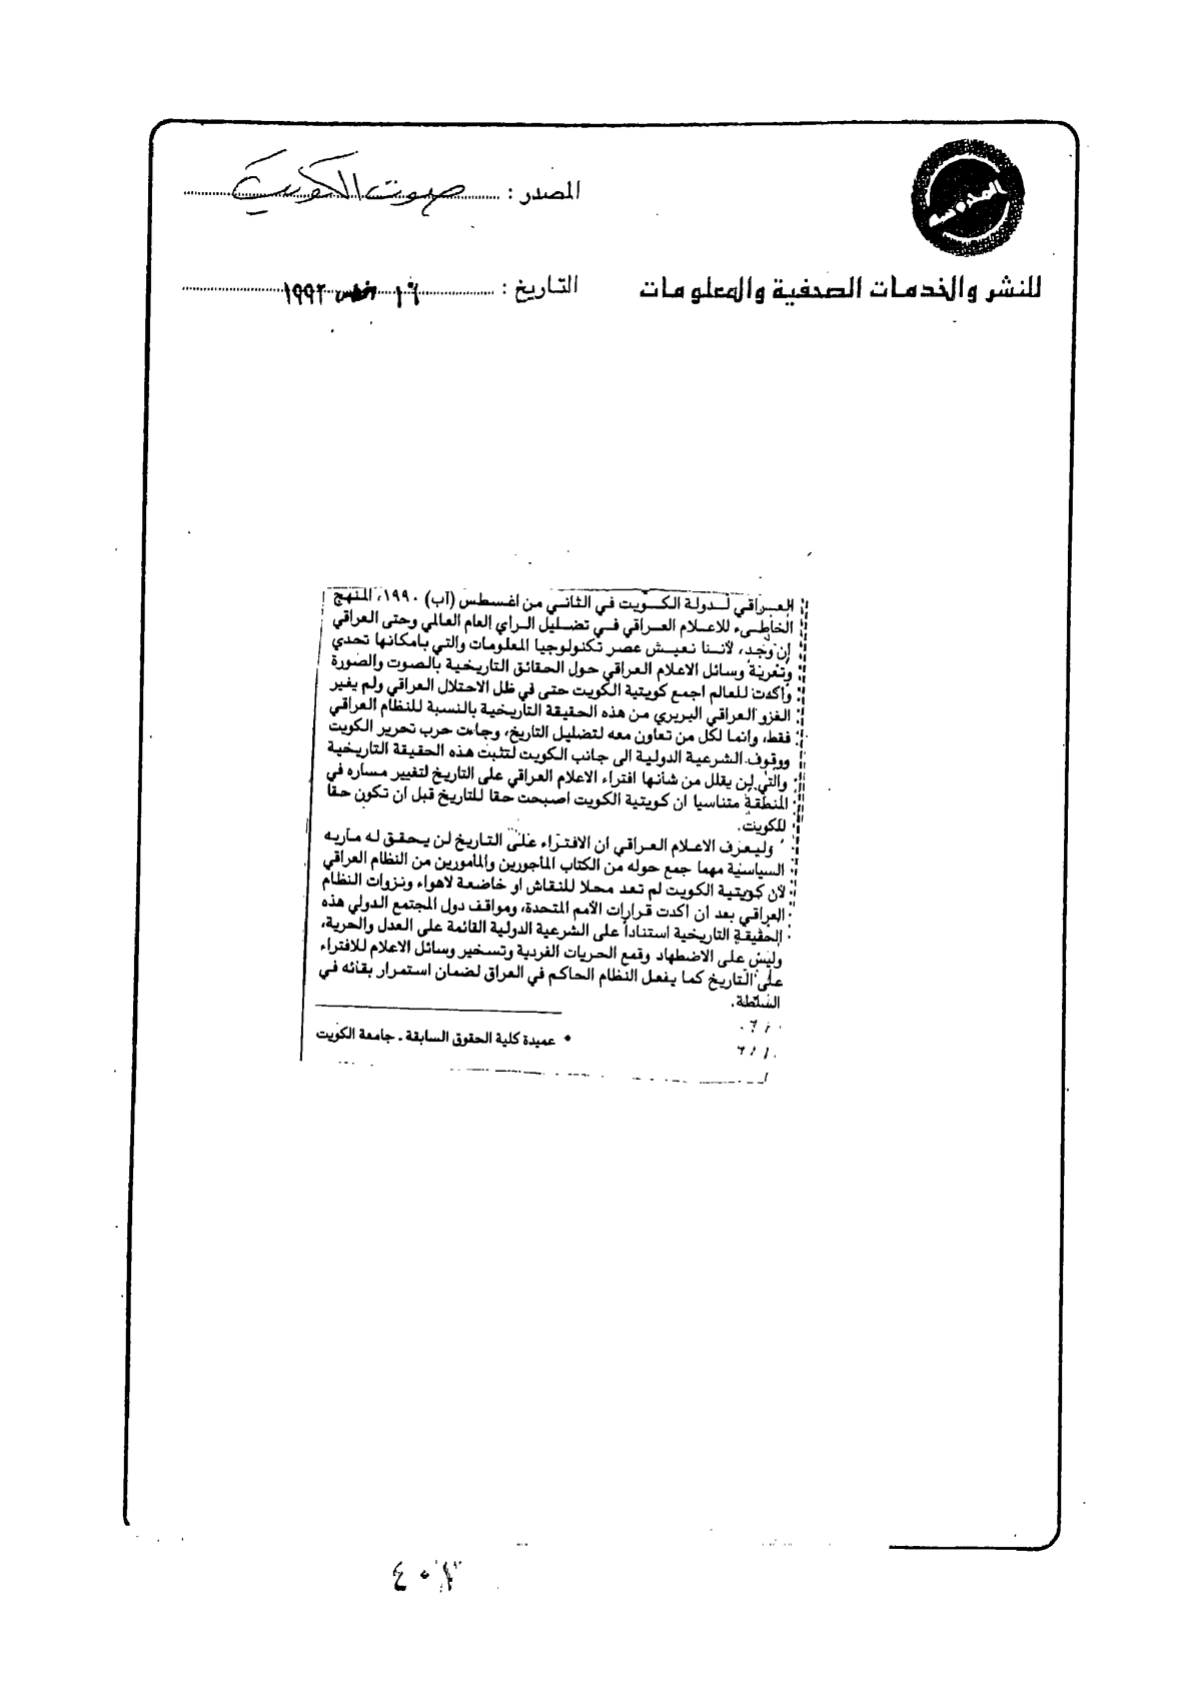 المصدر : صوت الكويت
للنشر والخدمات الصحفية والمعلومات
التاريخ : ١٦ اغسطس ١٩٩٢
العراقي لدولة الكويت في الثاني من اغسطس (آب) ١٩٩٠، المنهج
الخاطىء للاعلام العراقي في تضليل الراي العام العالمي وحتى العراقي
إن وجد، لأننا نعيش عصر تكنولوجيا المعلومات والتي بامكانها تحدي
وتعرية وسائل الاعلام العراقي حول الحقائق التاريخية بالصوت والصورة
واكدت للعالم اجمع كويتية الكويت حتى في ظل الاحتلال العراقي ولم يغير
الغزو العراقي البربري من هذه الحقيقة التاريخية بالنسبة للنظام العراقي
فقط، وانما لكل من تعاون معه لتضليل التاريخ، وجاءت حرب تحرير الكويت
ووقوف الشرعية الدولية الى جانب الكويت لتثبت هذه الحقيقة التاريخية
والتي لن يقلل من شأنها افتراء الاعلام العراقي على التاريخ لتغيير مساره في
المنطقة متناسيا ان كويتية الكويت اصبحت حقا للتاريخ قبل ان تكون حقا
للكويت.
وليعرف الاعلام العراقي ان الافتراء على التاريخ لن يحقق له مآربه
السياسية مهما جمع حوله من الكتاب المأجورين والمأمورين من النظام العراقي
لأن كويتية الكويت لم تعد محلا للنقاش او خاضعة لاهواء ونزوات النظام
العراقي بعد ان اكدت قرارات الأمم المتحدة، ومواقف دول المجتمع الدولي هذه
الحقيقة التاريخية استناداً على الشرعية الدولية القائمة على العدل والحرية،
وليس على الاضطهاد وقمع الحريات الفردية وتسخير وسائل الاعلام للافتراء
على التاريخ كما يفعل النظام الحاكم في العراق لضمان استمرار بقائه في
السلطة.
* عميدة كلية الحقوق السابقة ـ جامعة الكويت